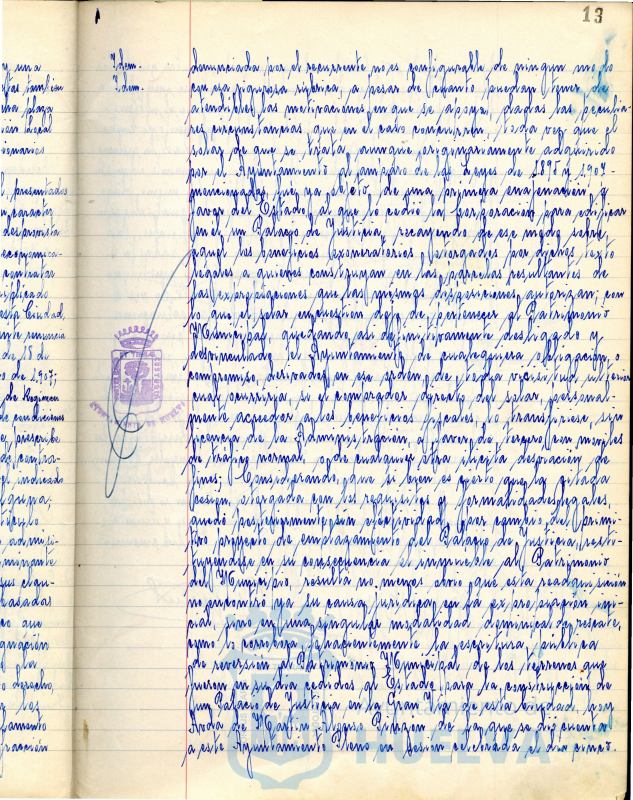 13
y una
una plaza
Idem.
Idem.
denunciada por el recurrente no es configurable de ningun modo
con esa rigurosa rúbrica, a pesar de cuanto puedan tener de
atendibles las motivaciones en que se apoya, dadas las peculia-
res circunstancias, que en el caso concurren, toda vez que el
solar de que se trata, aunque originariamente adquirido
por el Ayuntamiento al amparo de las Leyes de 1895 y 1907
fué ya objeto de una primera enajenación a
favor del Estado al que lo cedió la Corporación para edificar
en el un Palacio de Justicia, recayendo de ese modo sobre
aquel los beneficios exoneratorios otorgados por dichos textos
legales a quienes construyan en las parcelas resultantes de
las expropiaciones que las mismas disposiciones autorizan; con
lo que el solar en cuestion dejó de pertenecer al Patrimonio
Municipal, quedando así definitivamente desligado y
desvinculado el Ayuntamiento de cualquiera obligación o
compromiso, derivados en ese orden, de toda vicisitud ulterior
cual ocurriría, si el comprador directo del solar, personal-
mente acreedor a los beneficios fiscales, lo transfiriese, sin
licencia de la Administración, a favor de tercero en moldes
de tráfico normal, o de cualquier otra lícita desviación de
fines; Considerando, que si bien es cierto que la citada
cesión, otorgada con los requisitos y formalidades legales,
quedó posteriormente sin efectividad por cambio del primi-
tivo proyecto de emplazamiento del Palacio de Justicia, resti-
tuyendose en su consecuencia el inmueble al Patrimonio
del Municipio, resulta no menos obvio que esta readquisición
no encontró ya su causa jurídica en la expropiación ini-
cial, sino en una singular modalidad dominical de rescate,
como lo corrobora fehacientemente la escritura pública
de reversión al Patrimonio Municipal de los terrenos que
fueron en su día cedidos al Estado para la construcción de
un Palacio de Justicia en la Gran Vía de esta ciudad, hoy
Avda de Martin Alonso Pinzón de la que se dió cuenta
a este Ayuntamiento Pleno en sesion celebrada el dia cinco
de 18 de
de 1907;
de Regimen
HUELVA